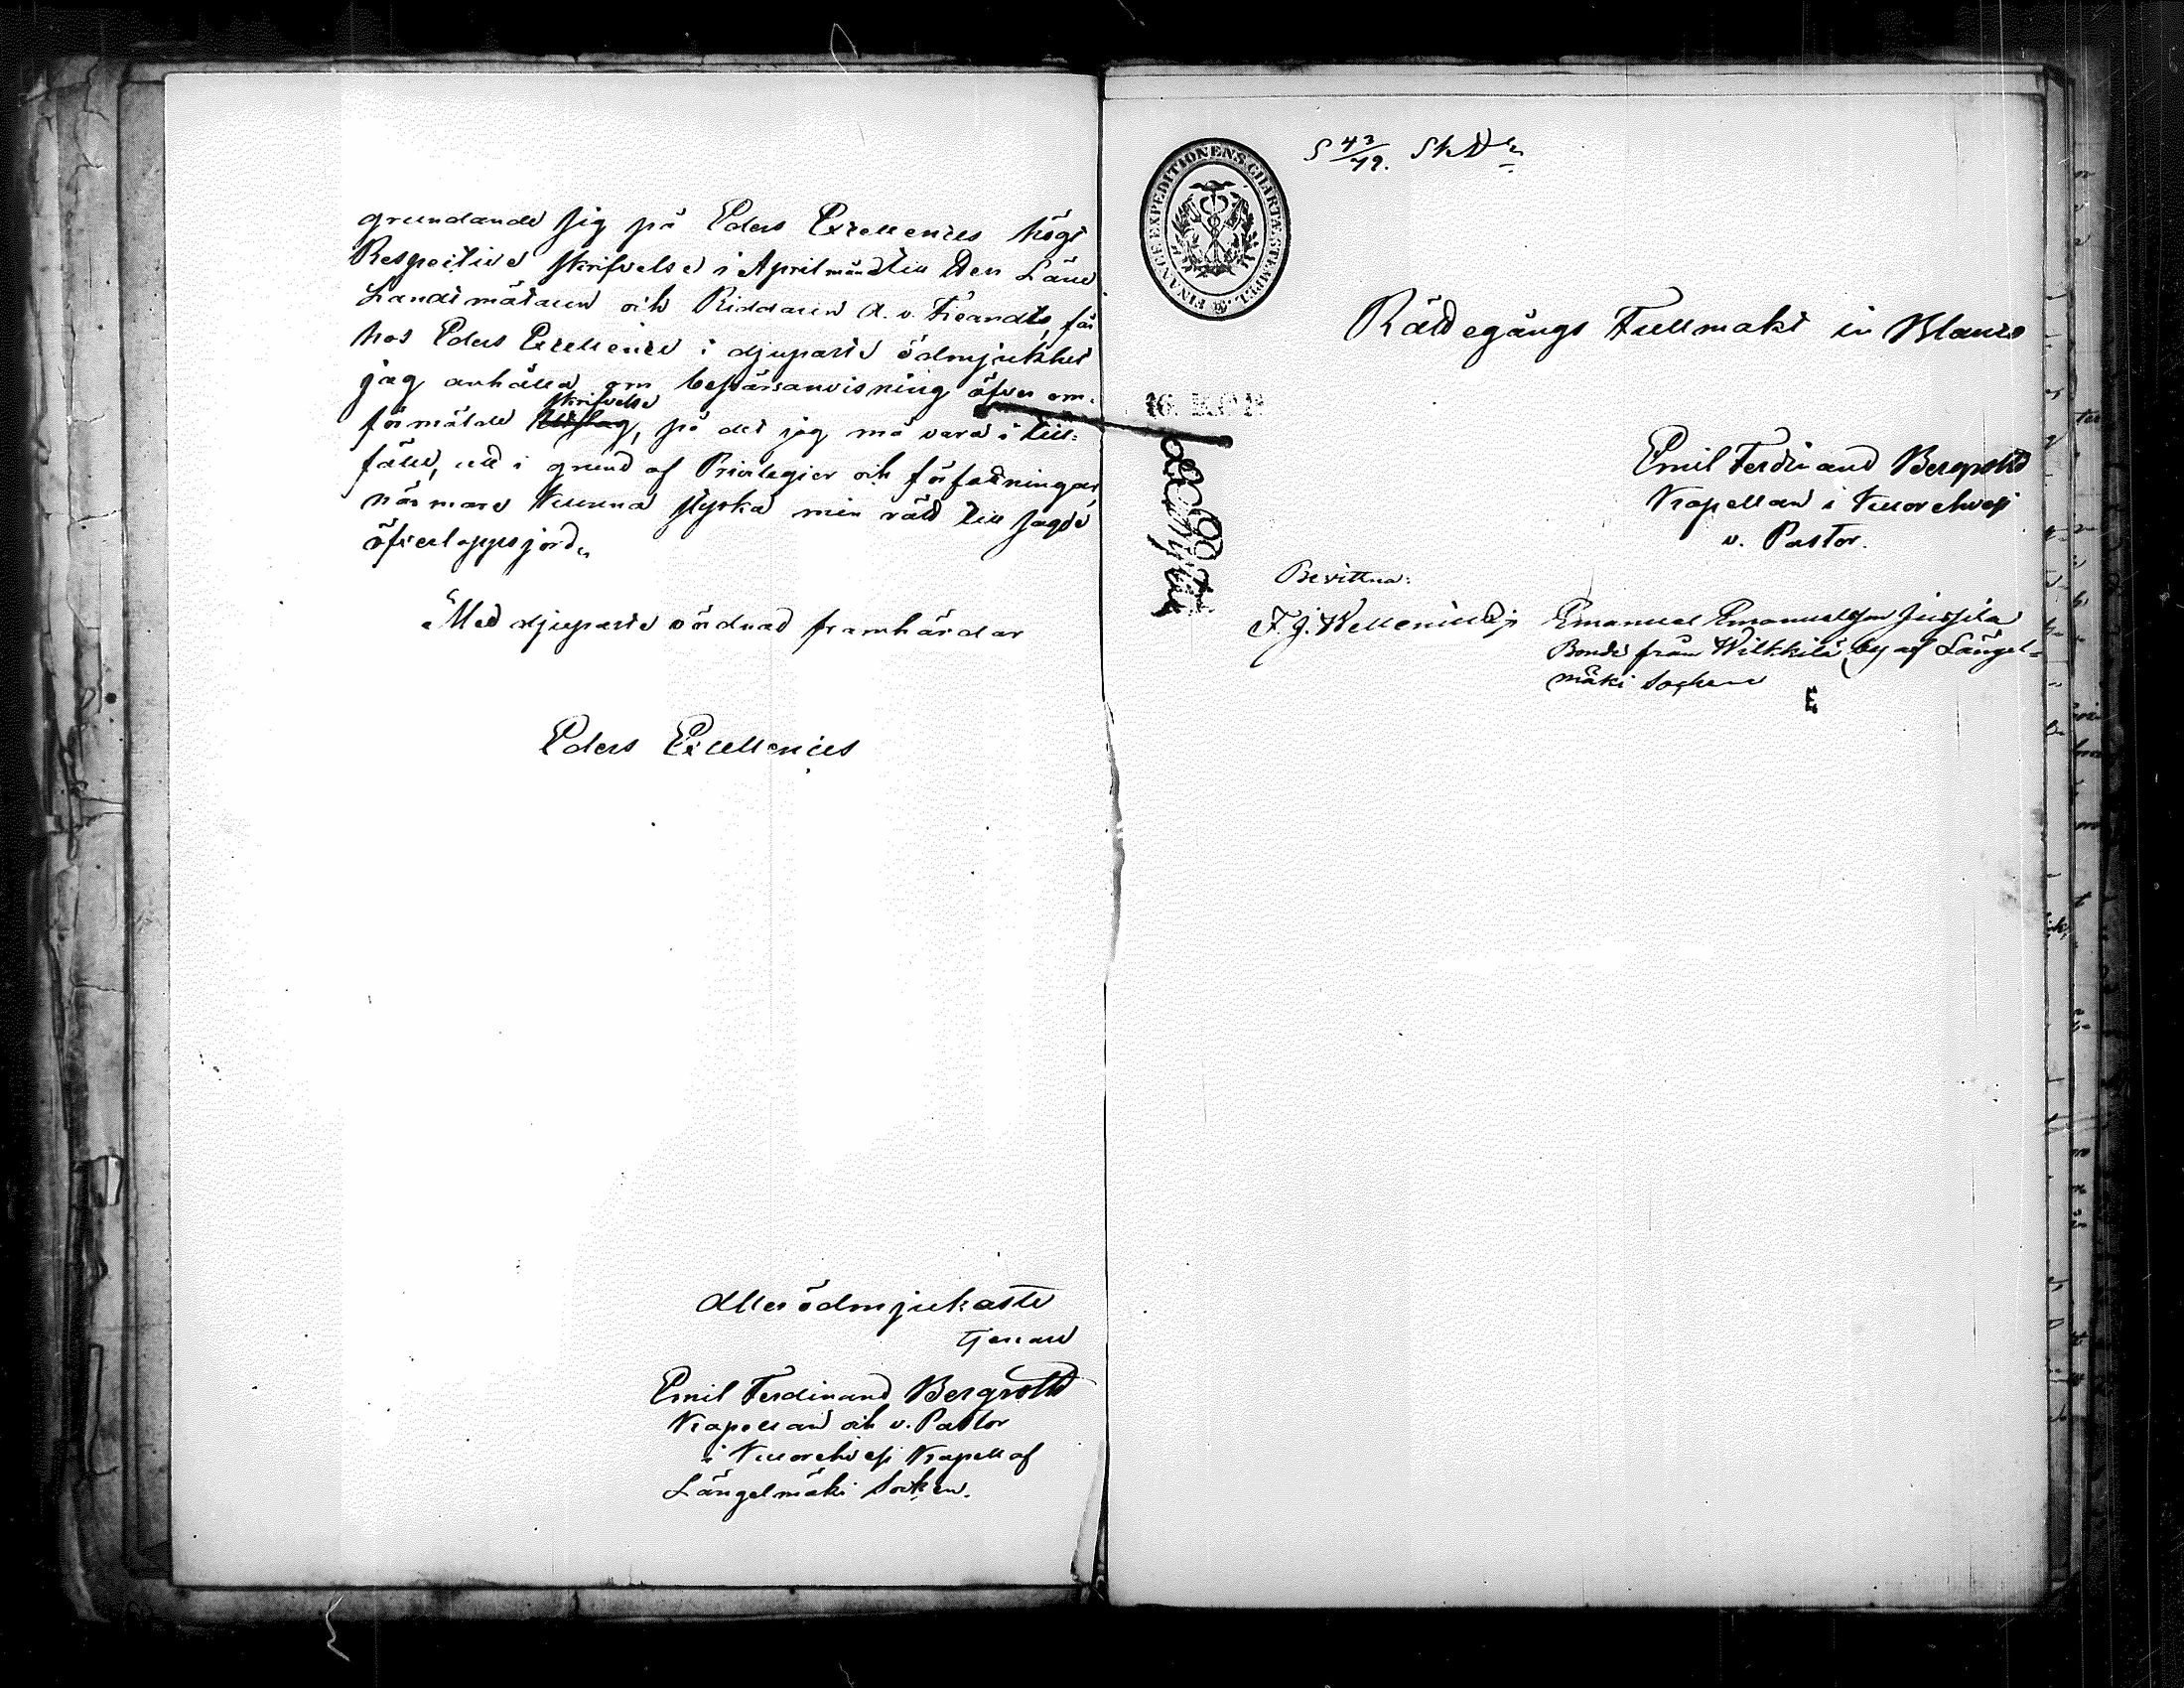 grundande sig på Eders Excellences högt
Respective skrifvelse i April månad till Herr Läne
Landtmätaren och Riddaren A. v. Fieandts, får
hos Eders Excellence i djupaste ödmjukhet
jag anhålla om besvärsanvisning öfver om-
skrifvelse
förmälde Utslag, på det jag må vara i till-
fälle, att i grund af Privilegier och författningar
närmare kunna styrka min rätt till sagde
öfverloppsjord.
Med djupaste vördnad framhärdar
Eders Excellences
Allerödmjukaste
tjenare
Emil Ferdinand Bergroth
Kapellan och v. Pastor
i Kuorehvesi Kapell af
Längelmäki Socken.
S 43/79.
FINANCE EXPEDITIONENS CHARTÆ STEMPEL
Rättegångs Fullmakt in Blanco
16. KOP.
Emil Ferdinand Bergroth
Kapellan i Kuorehvesi
v. Pastor.
Bevittna:
Emanuel Emanuelsson Jussila
Bonde från Wilkkilä by af Längel-
mäki Socken